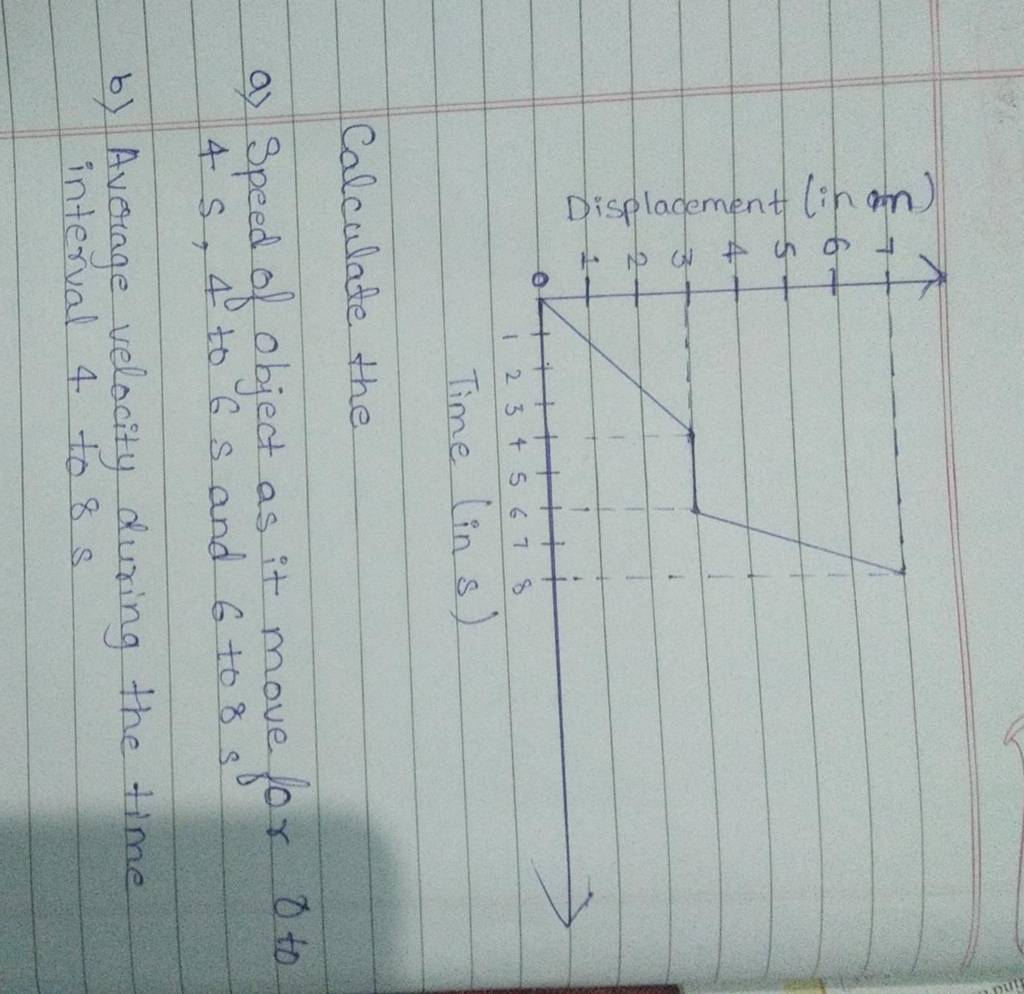 Displacement (in m)
7
6
5
4
3
2
1
0
1 2 3 4 5 6 7 8
Time (in s)
Calculate the
a) Speed of object as it move for 0 to
4 s, 4 to 6 s and 6 to 8 s
b) Average velocity during the time
interval 4 to 8 s